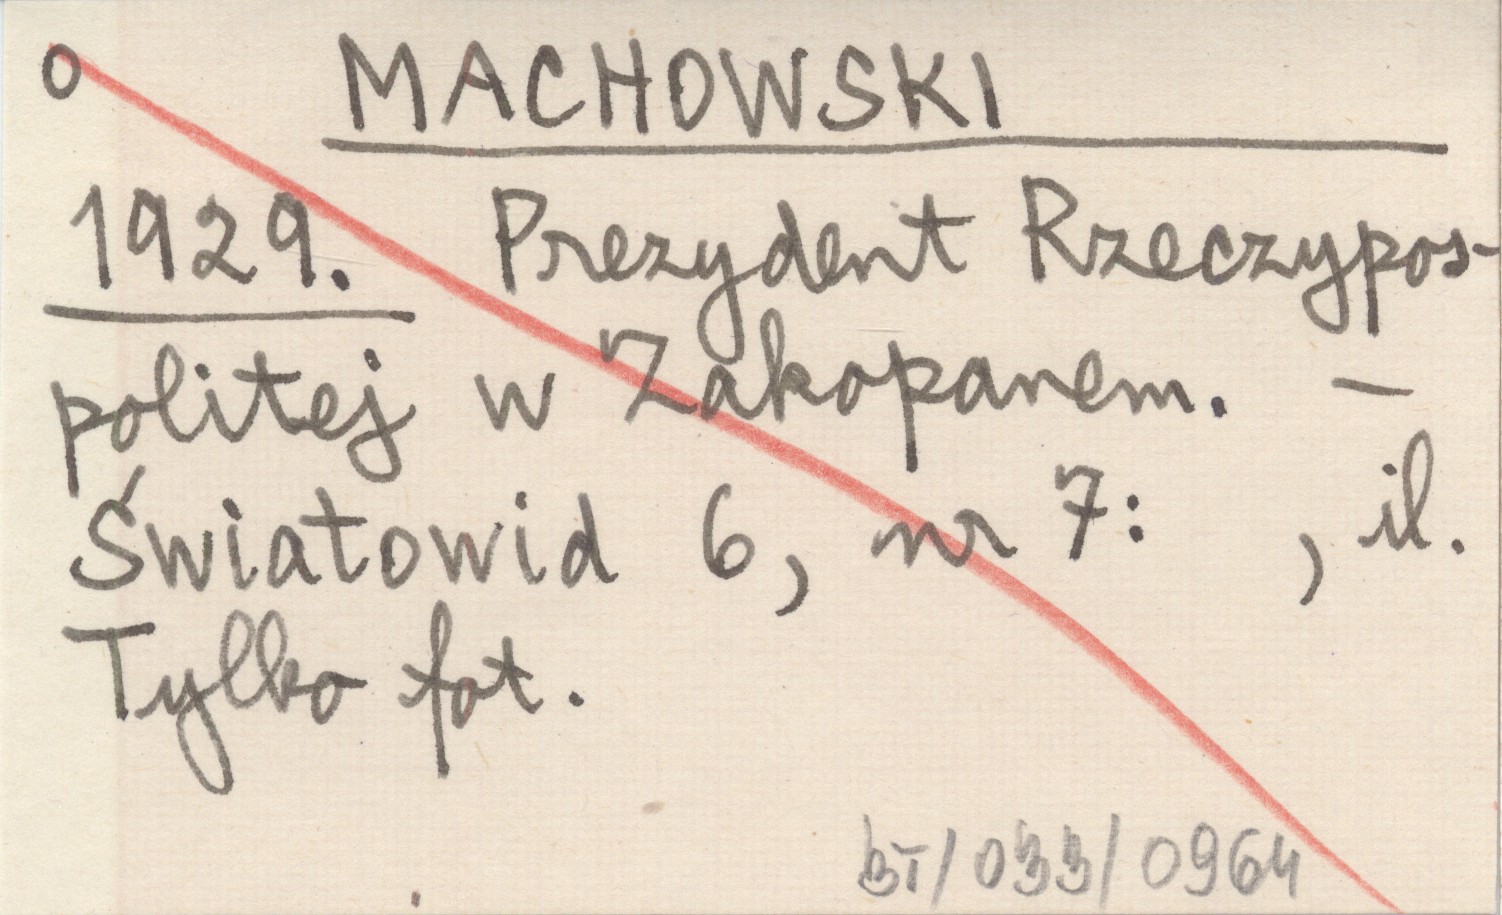 o MACHOWSKI
1929. Prezydent Rzeczypos-
politej w Zakopanem. –
Światowid 6, nr 7: , il.
Tylko fot.
BT/033/0964